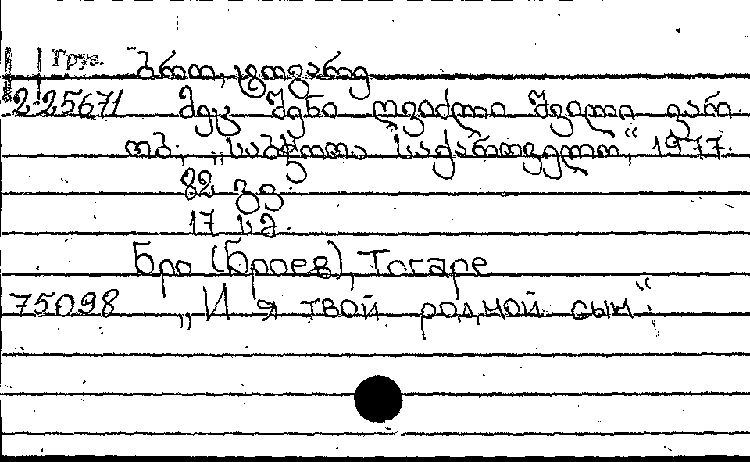 Груз. ბრიო, ტოგარე
225671 მეც შენი ღვიძლი შვილი ვარი
თბ., „საბჭოთა საქართველო“, 1977.
82 გვ.
17 სმ.
Бро (Броев), Тогаре
75098 „И я твой родной сын“.